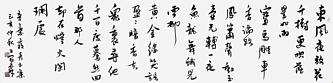 東風夜放花
千樹更吹落
星如雨
寶馬雕車
香滿路
鳳簫聲動玉
壺光轉一夜
魚龍舞蛾兒
雪柳
黃金縷笑語
盈盈暗香去
衆裏尋他
千百度驀然回
首那人
却在燈火闌
珊處